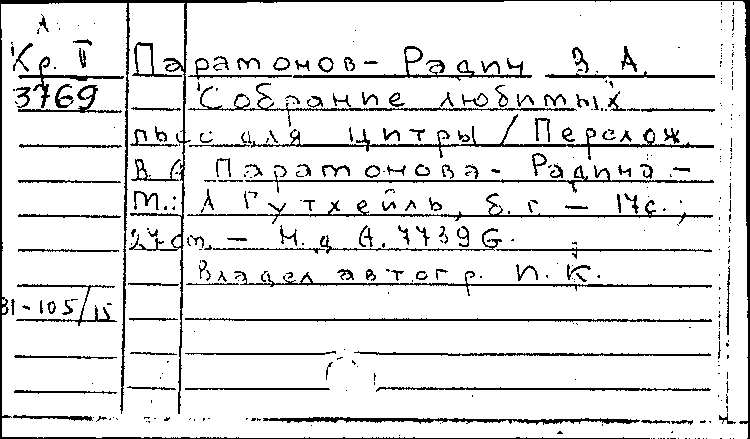 А
Кр. I
3769
Паратонов - Радич В. А.
Собрание любимых
пьес для цитры / Перелож.
В А Паратонова - Радича -
М.: А Гутхейль, б. г. - 17с.;
27см. - Н. д А. 7739 G.
Владел автогр. П. К.
81-105/15